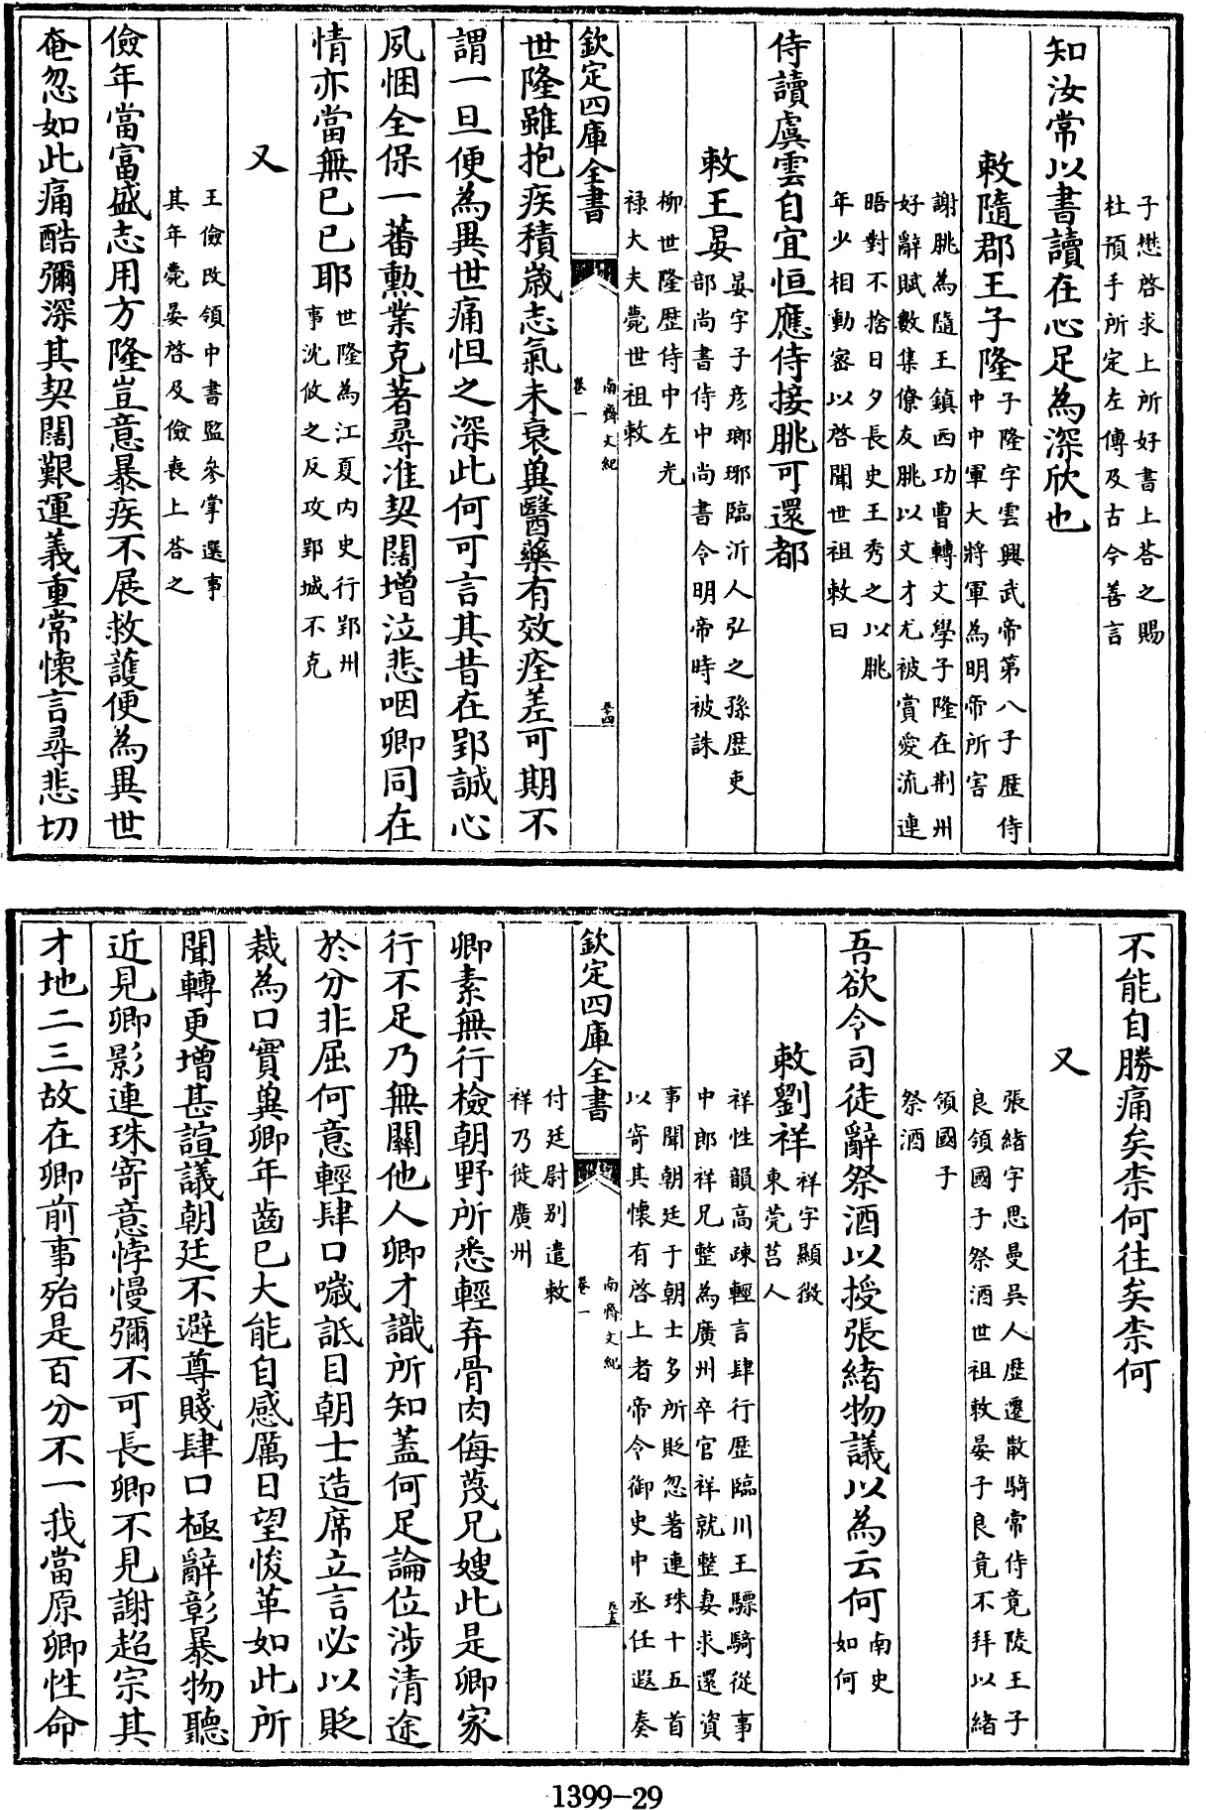 子懋啓求上所好書上答之賜
杜預手所定左傳及古今善言
知汝常以書讀在心足為深欣也
敕隨郡王子隆
子隆字雲興武帝第八子歴侍
中中軍大將軍為明帝所害
謝朓為隨王鎮西功曹轉文學子隆在荆州
好辭賦數集僚友朓以文才尤被賞愛流連
晤對不捨日夕長史王秀之以朓
年少相動宻以啓聞世祖敕曰
侍讀虞雲自宜恒應侍接朓可還都
敕王晏
晏字子彦瑯琊臨沂人弘之孫歴吏
部尚書侍中尚書令明帝時被誅
柳世隆歴侍中左光
禄大夫薨世祖敕
欽定四庫全書
南齊文紀
卷一
五十四
世隆雖抱疾積歳志氣未衰兾醫藥有效痊差可期不
謂一旦便為異世痛怛之深此何可言其昔在郢誠心
夙悃全保一蕃勲業克著尋准契闊增泣悲咽卿同在
情亦當無已已耶
世隆為江夏内史行郢州
事沈攸之反攻郢城不克
又
王儉改領中書監參掌選事
其年薨晏啓及儉喪上答之
儉年當富盛志用方隆豈意暴疾不展救護便為異世
奄忽如此痛酷彌深其契闊艱運義重常懐言尋悲切
不能自勝痛矣柰何往矣柰何
又
張緒字思曼吳人歴遷散騎常侍竟陵王子
良領國子祭酒世祖敕晏子良竟不拜以緒
領國子
祭酒
吾欲令司徒辭祭酒以授張緒物議以為云何
南史
如何
敕劉祥
祥字顯徴
東莞莒人
祥性韻髙疎輕言肆行歴臨川王驃騎從事
中郎祥兄整為廣州卒官祥就整妻求還資
事聞朝廷于朝士多所貶忽著連珠十五首
以寄其懐有啓上者帝令御史中丞任遐奏
付廷尉别遣敕
祥乃徙廣州
欽定四庫全書
南齊文紀
卷一
五十五
卿素無行檢朝野所悉輕弃骨肉侮蔑兄嫂此是卿家
行不足乃無關他人卿才識所知葢何足論位涉清途
於分非屈何意輕肆口噦詆目朝士造席立言必以貶
裁為口實兾卿年齒已大能自感厲日望悛革如此所
聞轉更增甚諠議朝廷不避尊賤肆口極辭彰暴物聽
近見卿影連珠寄意悖慢彌不可長卿不見謝超宗其
才地二三故在卿前事殆是百分不一我當原卿性命
1399-29